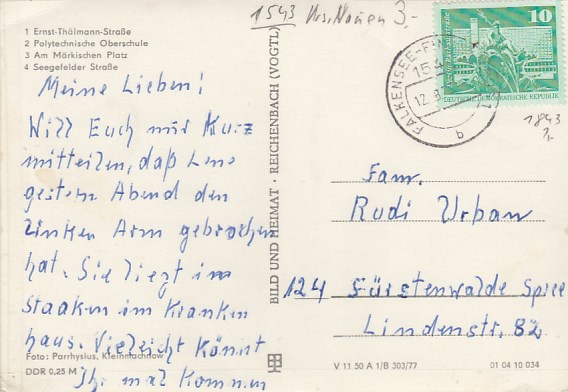 1 Ernst-Thälmann-Straße
2 Polytechnische Oberschule
3 Am Märkischen Platz
4 Seegefelder Straße
Meine Lieben!
Will Euch nur kurz
mitteilen, daß
gestern Abend den
linken Arm gebrochen
hat. Sie liegt im
Staaken im Kranken
haus. Vielleicht könnt
Ihr mal kommen
Foto: Parrhysius, Kleinmachnow
DDR 0,25 M
BILD UND HEIMAT · REICHENBACH (VOGTL)
1543
3,-
10
DEUTSCHE DEMOKRATISCHE REPUBLIK
FALKENSEE-FI
154
12.8.
b
1843
Fam.
Rudi Urban
124 Fürstenwalde Spree
Lindenstr. 82
V 11 50 A 1/B 303/77
01 04 10 034